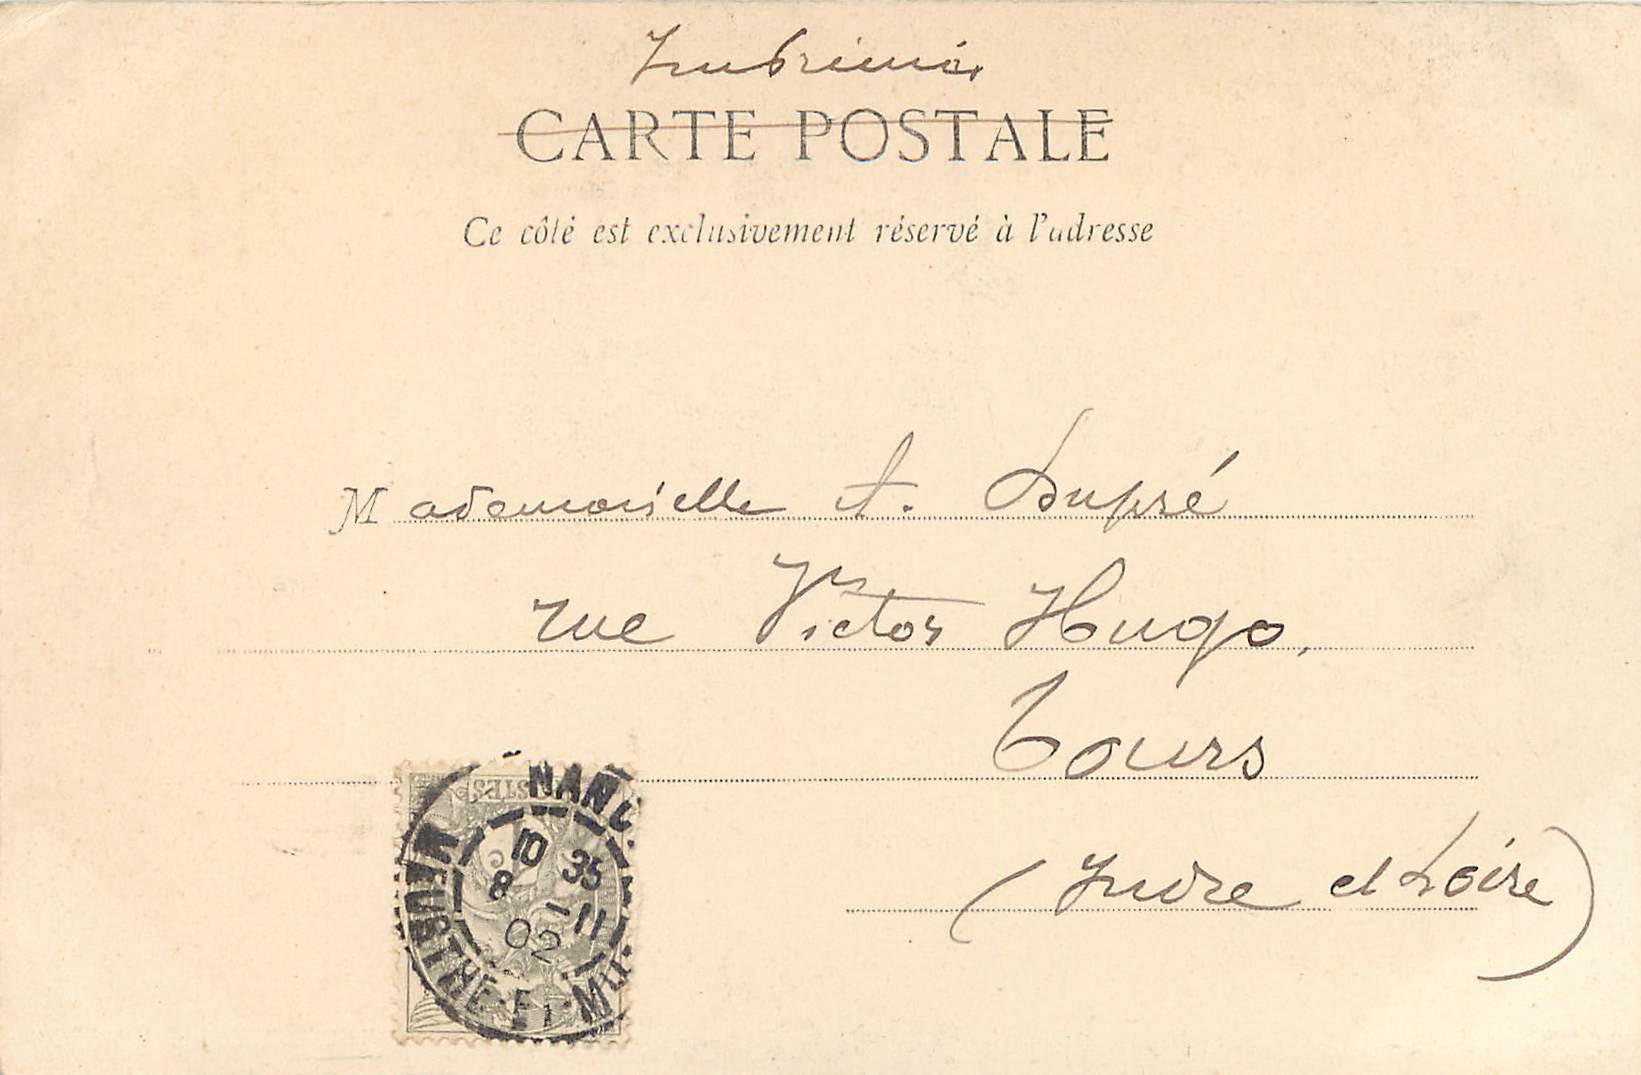 Imprimé
CARTE POSTALE
Ce côté est exclusivement réservé à l'adresse
Mademoiselle A. Dupré
rue Victor Hugo,
Tours
(Indre et Loire)
NANC
10 35
8 - 11
02
MEURTHE-ET-M